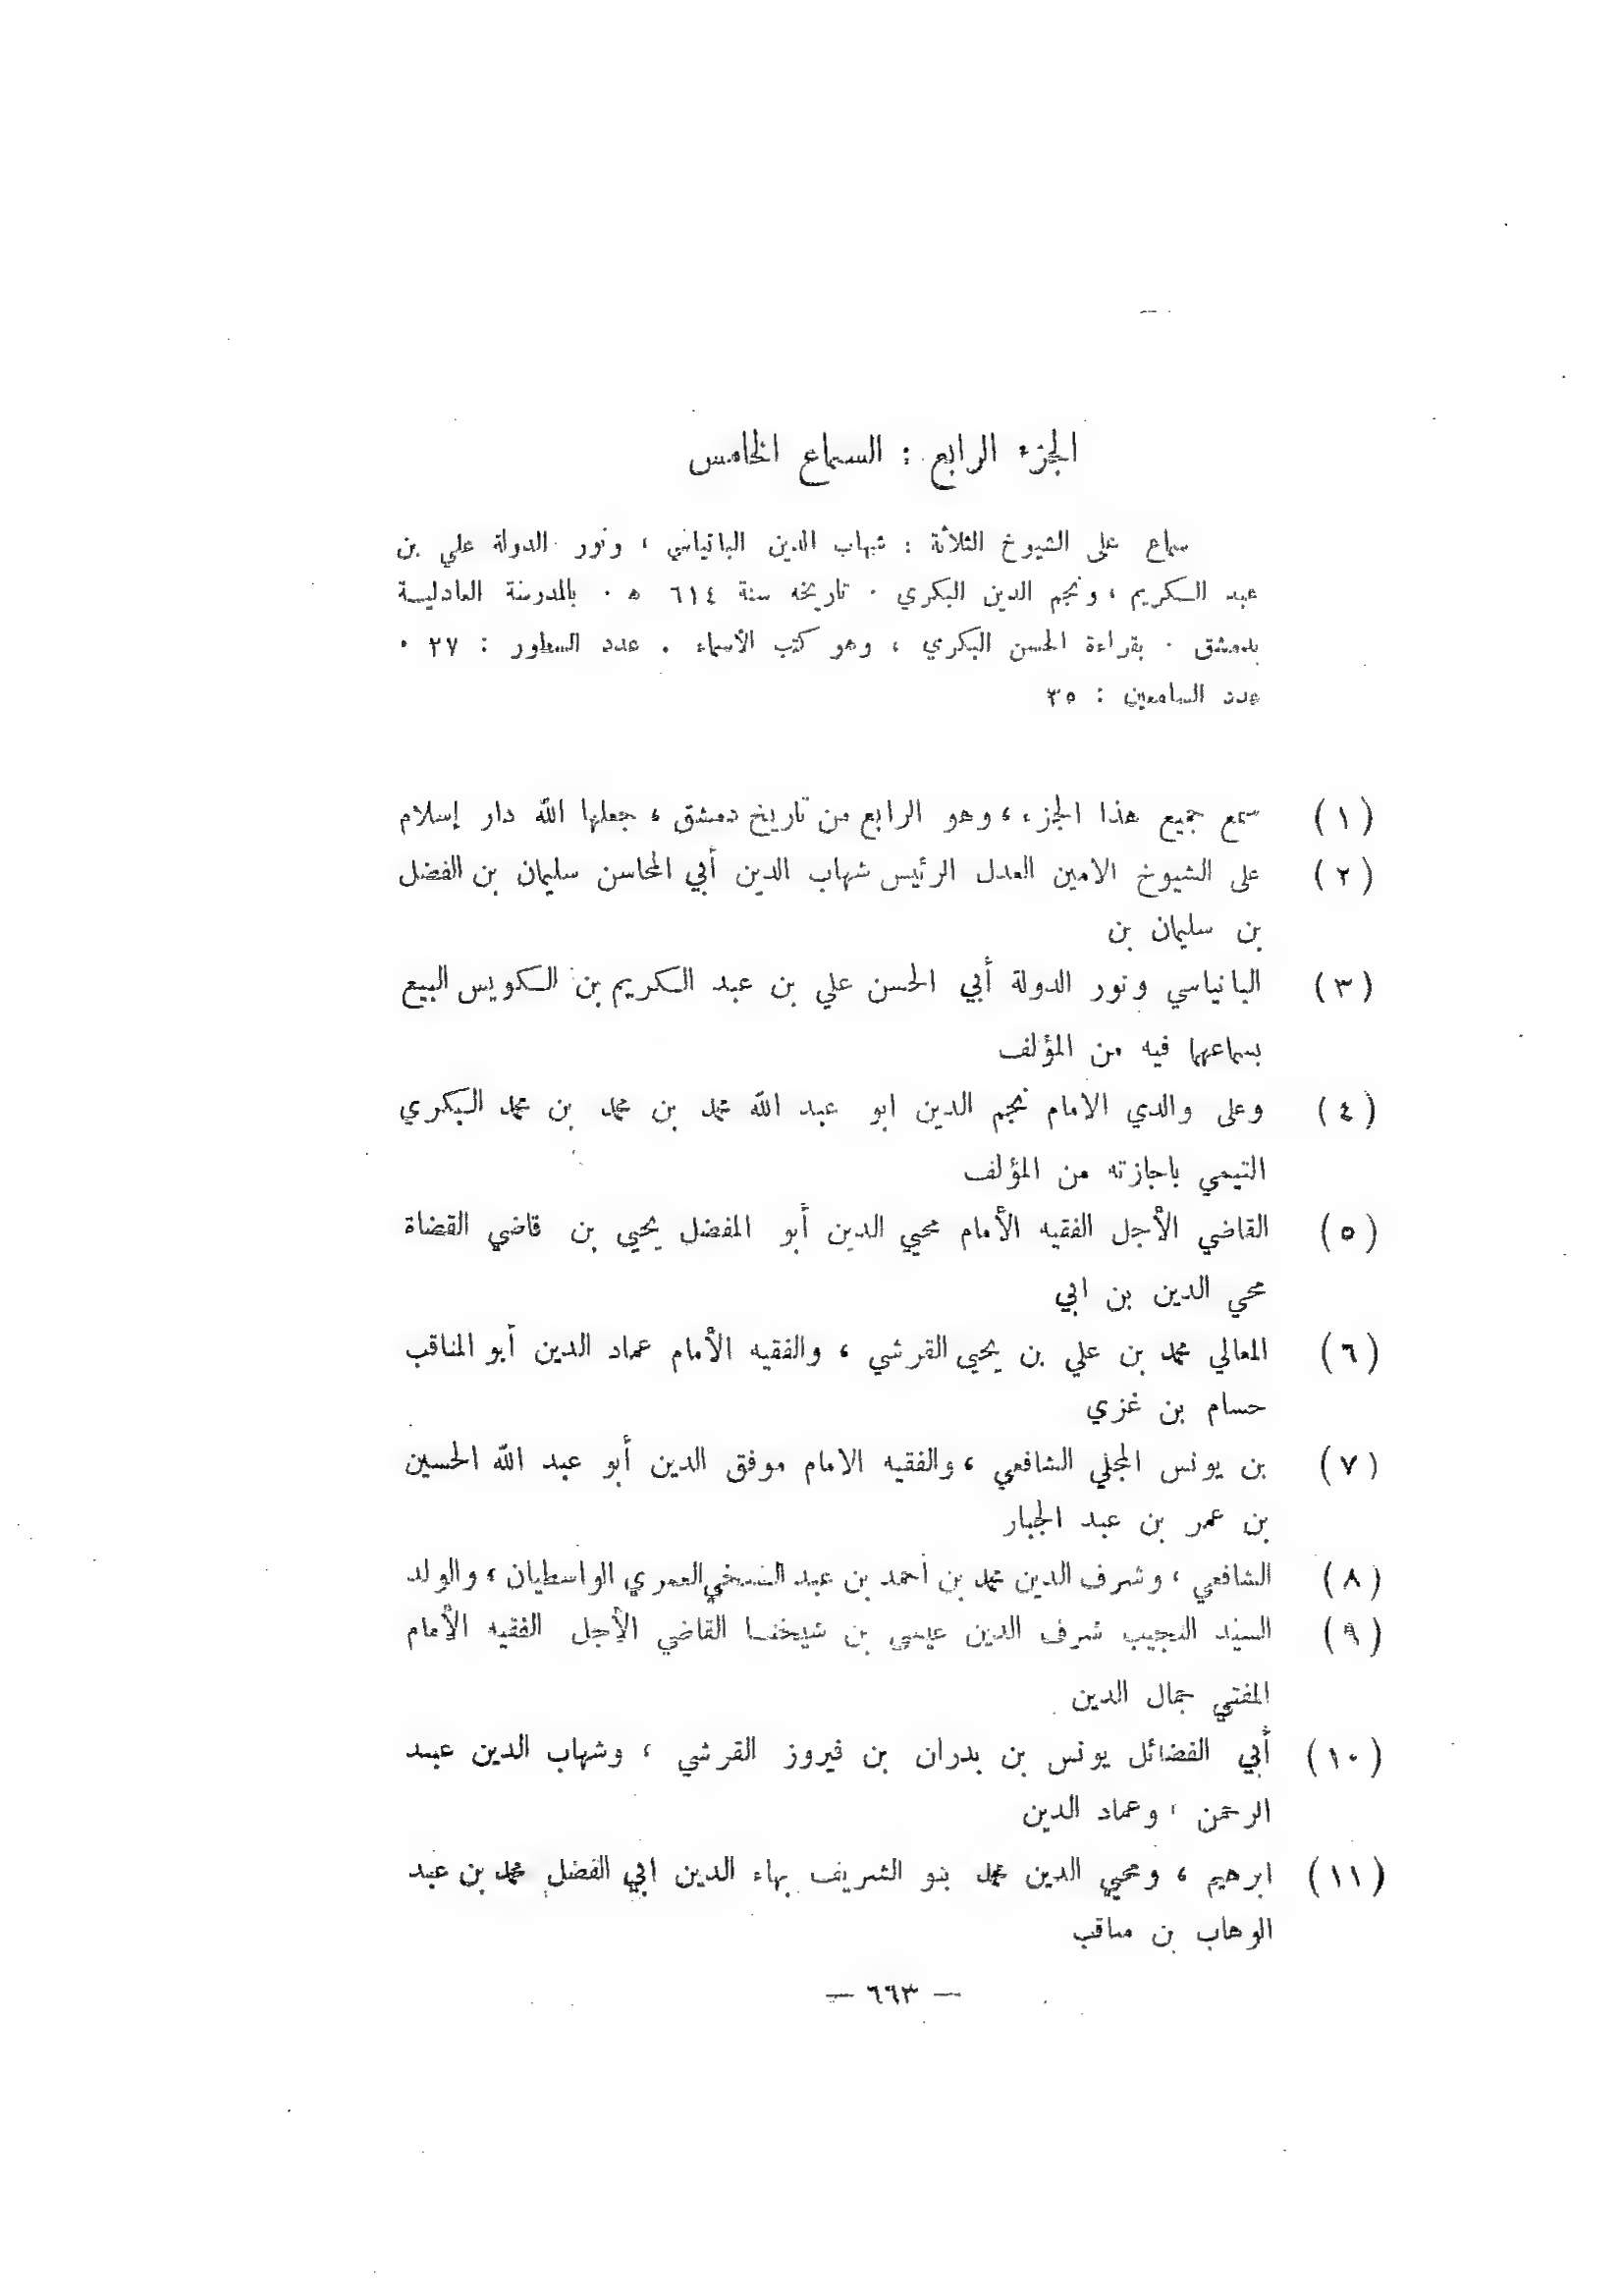 الجزء الرابع : السماع الخامس
سماع على الشيوخ الثلاثة : شهاب الدين البانياسي ، ونور الدولة علي بن
عبد الكريم ، ونجم الدين البكري . تاريخه سنة ٦١٤ هـ . بالمدرسة العادلية
بدمشق . بقراءة الحسن البكري ، وهو كتب الأسماء . عدد السطور : ٢٧ .
عدد السامعين : ٣٥
(١) سمع جميع هذا الجزء ، وهو الرابع من تاريخ دمشق ، جعلها الله دار إسلام
(٢) على الشيوخ الامين العدل الرئيس شهاب الدين أبي المحاسن سليمان بن الفضل
بن سليمان بن
(٣) البانياسي ونور الدولة أبي الحسن علي بن عبد الكريم بن الكويس البيع
بسماعهما فيه من المؤلف
(٤) وعلى والدي الامام نجم الدين ابو عبد الله محمد بن محمد بن محمد البكري
التيمي باجازته من المؤلف
(٥) القاضي الأجل الفقيه الأمام محيي الدين أبو المفضل يحيي بن قاضي القضاة
محي الدين بن ابي
(٦) المعالي محمد بن علي بن يحيى القرشي ، والفقيه الأمام عماد الدين أبو المناقب
حسام بن غزي
(٧) بن يونس المجلي الشافعي ، والفقيه الامام موفق الدين أبو عبد الله الحسين
بن عمر بن عبد الجبار
(٨) الشافعي ، وشرف الدين محمد بن احمد بن عبد العمري الواسطيان ، والولد
(٩) السيد النجيب شرف الدين عيسى بن شيخنا القاضي الأجل الفقيه الأمام
المفتي جمال الدين
(١٠) أبي الفضائل يونس بن بدران بن فيروز القرشي ، وشهاب الدين عبد
الرحمن ، وعماد الدين
(١١) ابرهيم ، ومحيي الدين محمد بنو الشريف بهاء الدين ابي الفضل محمد بن عبد
الوهاب بن مناقب
— ٦٦٣ —